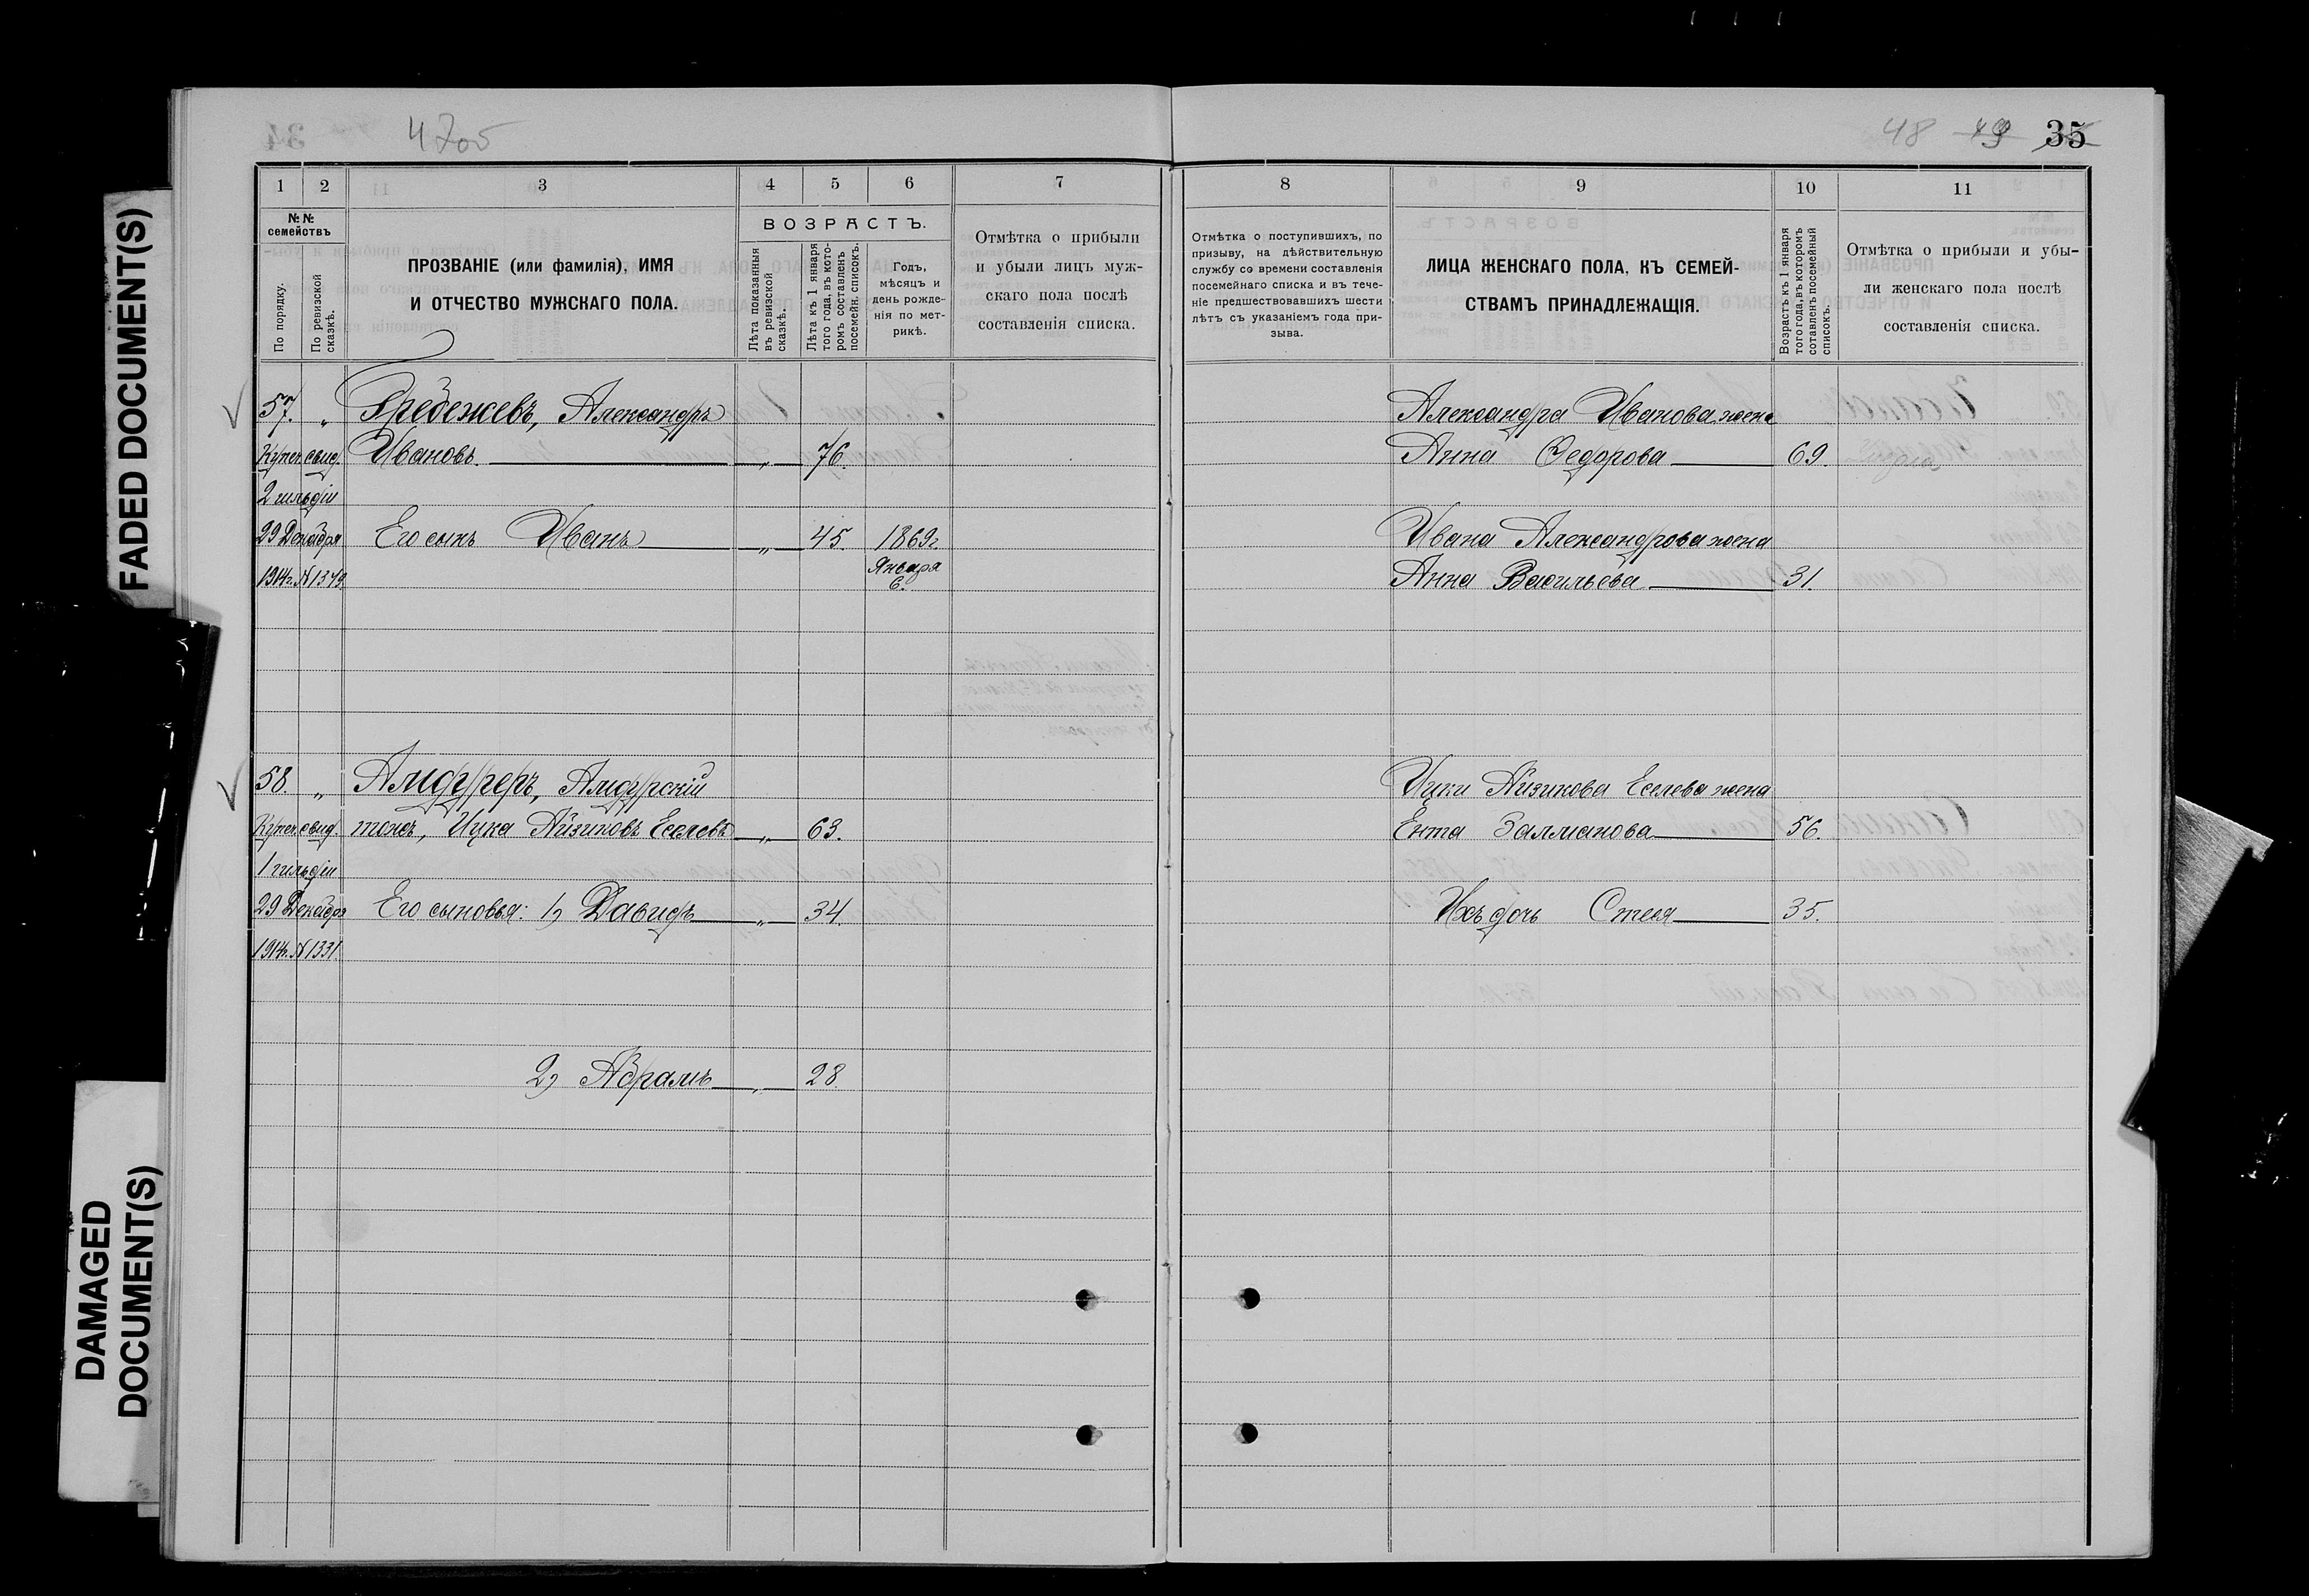 4705
48 49 35
1 2 3 4 5 6 7
8 9 10 11
№№ семействъ
По порядку.
По ревизской сказкѣ.
ПРОЗВАНІЕ (или фамилія), ИМЯ
И ОТЧЕСТВО МУЖСКАГО ПОЛА.
ВОЗРАСТЪ.
Лѣта показанныя
въ ревизской
сказкѣ.
Лѣта къ 1 января
того года, въ кото-
ромъ составленъ
посемейн. списокъ.
Годъ,
мѣсяцъ и
день рожде-
нія по мет-
рикѣ.
Отмѣтка о прибыли
и убыли лицъ муж-
скаго пола послѣ
составленія списка.
Отмѣтка о поступившихъ, по
призыву, на дѣйствительную
службу со времени составленія
посемейнаго списка и въ тече-
ніе предшествовавшихъ шести
лѣтъ съ указаніемъ года при-
зыва.
ЛИЦА ЖЕНСКАГО ПОЛА, КЪ СЕМЕЙ-
СТВАМЪ ПРИНАДЛЕЖАЩІЯ.
Возрастъ къ 1 января
того года, въ которомъ
составленъ посемейный
списокъ.
Отмѣтка о прибыли и убы-
ли женскаго пола послѣ
составленія списка.
57. „ Гребежевъ, Александръ
Купеч. свид. Ивановъ „ 76.
2 гильдіи
29 Декабря Его сынъ Иванъ „ 45. 1869 г.
1914 г. № 1349. Января
6.
Александра Иванова жена
Анна Ѳедорова 69.
Ивана Александрова жена
Анна Васильева 31.
58. „ Алуффферъ, Алуфферскій
Купеч. свид. тожъ, Ицка Айзиковъ Еселевъ „ 63.
1 гильдіи
29 Декабря Его сыновья: 1, Давидъ „ 34.
1914 г. № 1331.
2, Абрамъ „ 28
Ицки Айзикова Еселева жена
Ента Залманова 56.
Ихъ дочь Стеся 35.
FADED DOCUMENT(S)
DAMAGED
DOCUMENT(S)